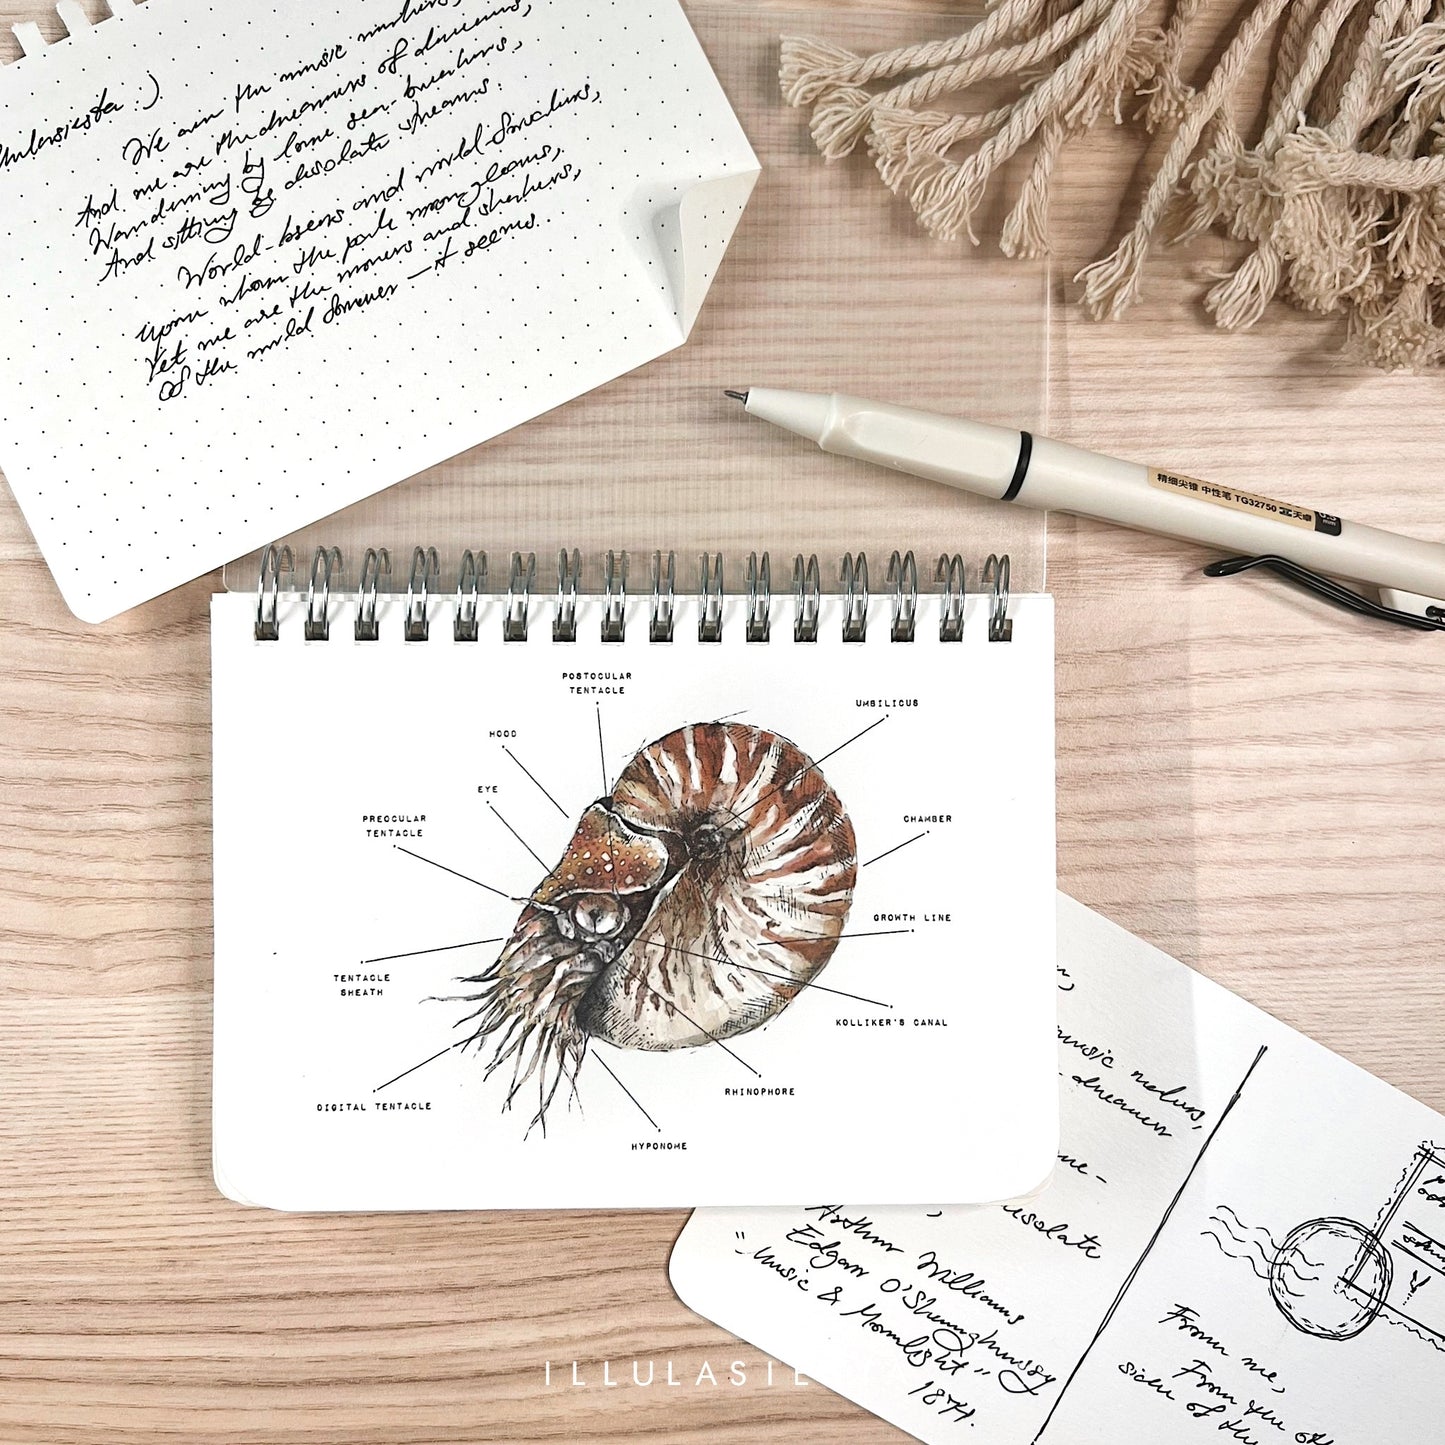 :)
We are the music makers,
And we are the dreamers of dreams,
Wandering by lone sea-breakers,
And sitting by desolate streams.
World-losers and world-forsakers,
Upon whom the pale moon gleams,
Yet we are the movers and shakers,
Of the world forever — it seems.
精细尖锥 中性笔 TG32750 天卓
mm
POSTOCULAR
TENTACLE
UMBILICUS
HOOD
EYE
PREOCULAR
TENTACLE
CHAMBER
GROWTH LINE
TENTACLE
SHEATH
KOLLIKER'S CANAL
RHINOPHORE
DIGITAL TENTACLE
HYPONOME
music makers,
dreamers
desolate
Arthur Williams
Edgar O'Shaughnessy
"Music & Moonlight"
1874.
From me,
From the
side of the
ILLULASIE